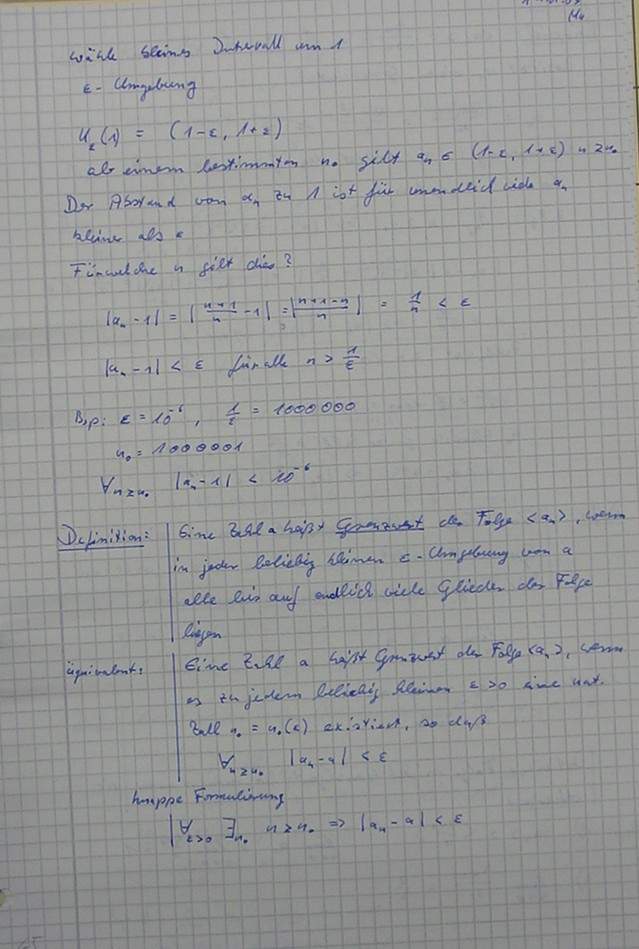 wähle kleines Intervall um 1
ε-Umgebung
U_ε(1) = (1-ε, 1+ε)
ab einem bestimmten n₀ gilt aₙ ∈ (1-ε, 1+ε) n ≥ n₀
Der Abstand von aₙ zu 1 ist für unendlich viele aₙ
kleiner als ε
Für welche n gilt dies?
|aₙ - 1| = |(n+1)/n - 1| = |(n+1-n)/n| = 1/n < ε
|aₙ - 1| < ε für alle n > 1/ε
Bsp: ε = 10⁻⁶, 1/ε = 1000000
n₀ = 1000001
∀ n≥n₀ |aₙ - 1| < 10⁻⁶
Definition: Eine Zahl a heißt Grenzwert der Folge <aₙ>, wenn
in jeder beliebig kleinen ε-Umgebung von a
alle bis auf endlich viele Glieder der Folge
liegen
äquivalent: Eine Zahl a heißt Grenzwert der Folge <aₙ>, wenn
es zu jedem beliebig kleinen ε > 0 eine nat.
Zahl n₀ = n₀(ε) existiert, so daß
∀ n≥n₀ |aₙ - a| < ε
knappe Formulierung
∀ ε>0 ∃ n₀ n ≥ n₀ ⇒ |aₙ - a| < ε